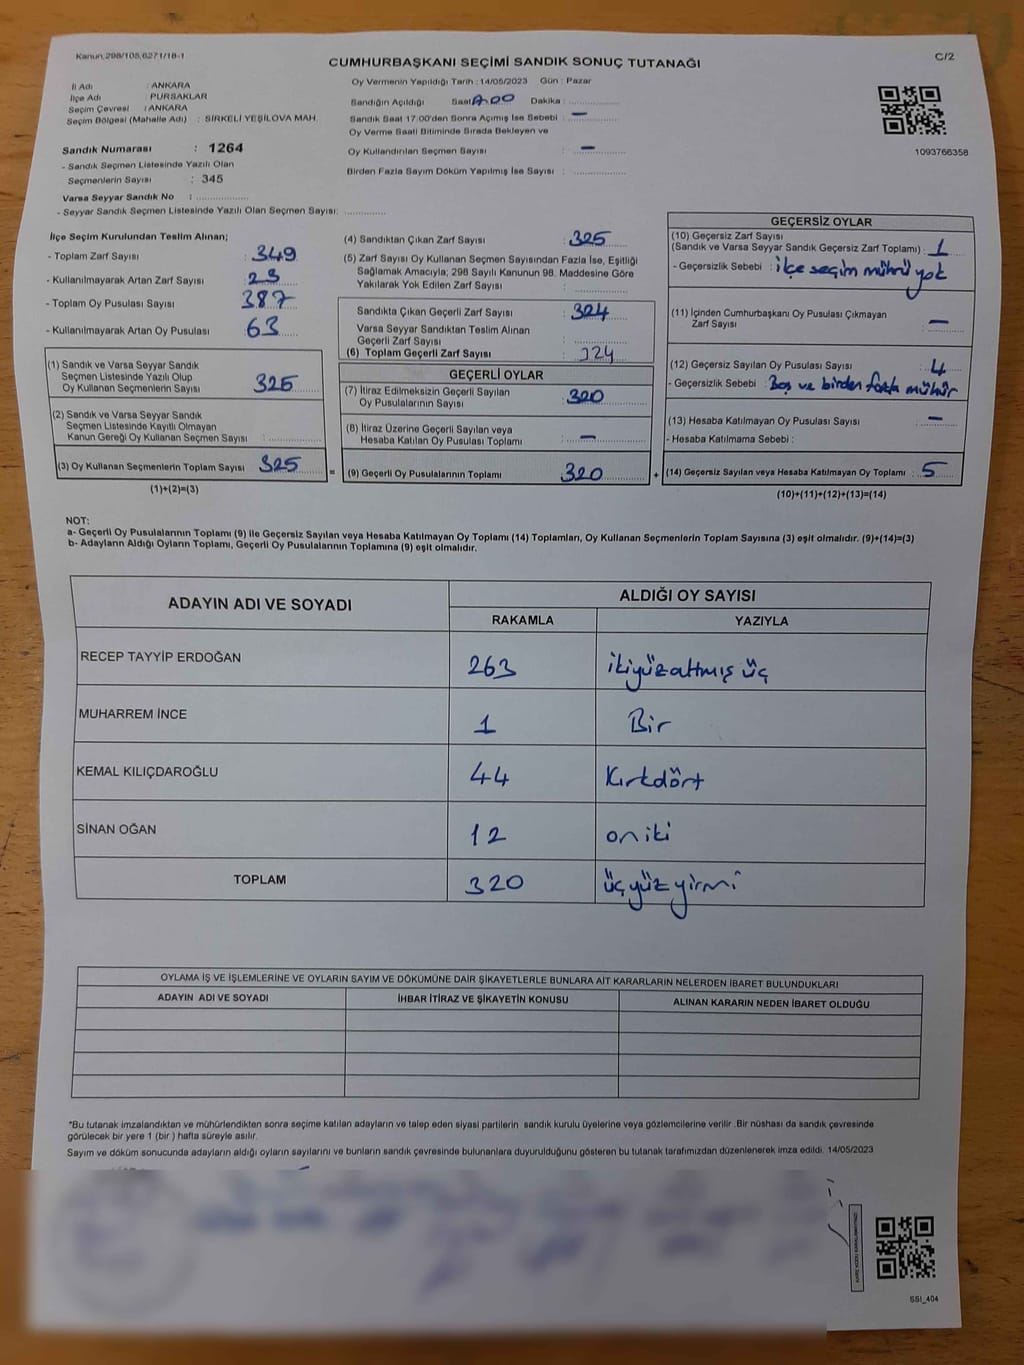 Kanun:298/105,6271/18-1
CUMHURBAŞKANI SEÇİMİ SANDIK SONUÇ TUTANAĞI
C/2
İl Adı : ANKARA
İlçe Adı : PURSAKLAR
Seçim Çevresi : ANKARA
Seçim Bölgesi (Mahalle Adı) : SİRKELİ YEŞİLOVA MAH.
Sandık Numarası : 1264
- Sandık Seçmen Listesinde Yazılı Olan
Seçmenlerin Sayısı : 345
Varsa Seyyar Sandık No :
- Seyyar Sandık Seçmen Listesinde Yazılı Olan Seçmen Sayısı:
Oy Vermenin Yapıldığı Tarih : 14/05/2023 Gün : Pazar
Sandığın Açıldığı Saat Dakika :
Sandık Saat 17:00'den Sonra Açımış İse Sebebi : –
Oy Verme Saati Bitiminde Sırada Bekleyen ve
Oy Kullandırılan Seçmen Sayısı : –
Birden Fazla Sayım Döküm Yapılmış İse Sayısı :
1093766358
İlçe Seçim Kurulundan Teslim Alınan;
- Toplam Zarf Sayısı : 349
- Kullanılmayarak Artan Zarf Sayısı : 23
- Toplam Oy Pusulası Sayısı : 387
- Kullanılmayarak Artan Oy Pusulası : 63
(1) Sandık ve Varsa Seyyar Sandık
Seçmen Listesinde Yazılı Olup
Oy Kullanan Seçmenlerin Sayısı : 325
(2) Sandık ve Varsa Seyyar Sandık
Seçmen Listesinde Kayıtlı Olmayan
Kanun Gereği Oy Kullanan Seçmen Sayısı :
(3) Oy Kullanan Seçmenlerin Toplam Sayısı : 325
(1)+(2)=(3)
=
(4) Sandıktan Çıkan Zarf Sayısı : 325
(5) Zarf Sayısı Oy Kullanan Seçmen Sayısından Fazla İse, Eşitliği
Sağlamak Amacıyla; 298 Sayılı Kanunun 98. Maddesine Göre
Yakılarak Yok Edilen Zarf Sayısı :
Sandıkta Çıkan Geçerli Zarf Sayısı : 324
Varsa Seyyar Sandıktan Teslim Alınan
Geçerli Zarf Sayısı :
(6) Toplam Geçerli Zarf Sayısı : 324
GEÇERLİ OYLAR
(7) İtiraz Edilmeksizin Geçerli Sayılan
Oy Pusulalarının Sayısı : 320
(8) İtiraz Üzerine Geçerli Sayılan veya
Hesaba Katılan Oy Pusulası Toplamı : –
(9) Geçerli Oy Pusulalarının Toplamı : 320
+
GEÇERSİZ OYLAR
(10) Geçersiz Zarf Sayısı
(Sandık ve Varsa Seyyar Sandık Geçersiz Zarf Toplamı) : 1
- Geçersizlik Sebebi : ilçe seçim mührü yok
(11) İçinden Cumhurbaşkanı Oy Pusulası Çıkmayan
Zarf Sayısı : –
(12) Geçersiz Sayılan Oy Pusulası Sayısı : 4
- Geçersizlik Sebebi : Boş ve birden fazla mühür
(13) Hesaba Katılmayan Oy Pusulası Sayısı : –
- Hesaba Katılmama Sebebi :
(14) Geçersiz Sayılan veya Hesaba Katılmayan Oy Toplamı : 5
(10)+(11)+(12)+(13)=(14)
NOT:
a- Geçerli Oy Pusulalarının Toplamı (9) ile Geçersiz Sayılan veya Hesaba Katılmayan Oy Toplamı (14) Toplamları, Oy Kullanan Seçmenlerin Toplam Sayısına (3) eşit olmalıdır. (9)+(14)=(3)
b- Adayların Aldığı Oyların Toplamı, Geçerli Oy Pusulalarının Toplamına (9) eşit olmalıdır.
ADAYIN ADI VE SOYADI
ALDIĞI OY SAYISI
RAKAMLA YAZIYLA
RECEP TAYYİP ERDOĞAN 263 ikiyüzaltmış üç
MUHARREM İNCE 1 Bir
KEMAL KILIÇDAROĞLU 44 Kırkdört
SİNAN OĞAN 12 on iki
TOPLAM 320 üçyüzyirmi
OYLAMA İŞ VE İŞLEMLERİNE VE OYLARIN SAYIM VE DÖKÜMÜNE DAİR ŞİKAYETLERLE BUNLARA AİT KARARLARIN NELERDEN İBARET BULUNDUKLARI
ADAYIN ADI VE SOYADI İHBAR İTİRAZ VE ŞİKAYETİN KONUSU ALINAN KARARIN NEDEN İBARET OLDUĞU
*Bu tutanak imzalandıktan ve mühürlendikten sonra seçime katılan adayların ve talep eden siyasi partilerin sandık kurulu üyelerine veya gözlemcilerine verilir .Bir nüshası da sandık çevresinde
görülecek bir yere 1 (bir ) hafta süreyle asılır.
Sayım ve döküm sonucunda adayların aldığı oyların sayılarını ve bunların sandık çevresinde bulunanlara duyurulduğunu gösteren bu tutanak tarafımızdan düzenlenerek imza edildi. 14/05/2023
SSI_404